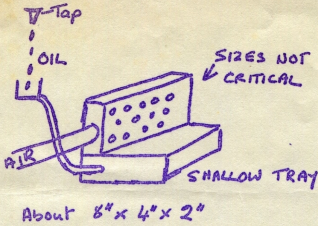 Tap
OIL
SIZES NOT
CRITICAL
AIR
SHALLOW TRAY
About 8" x 4" x 2"